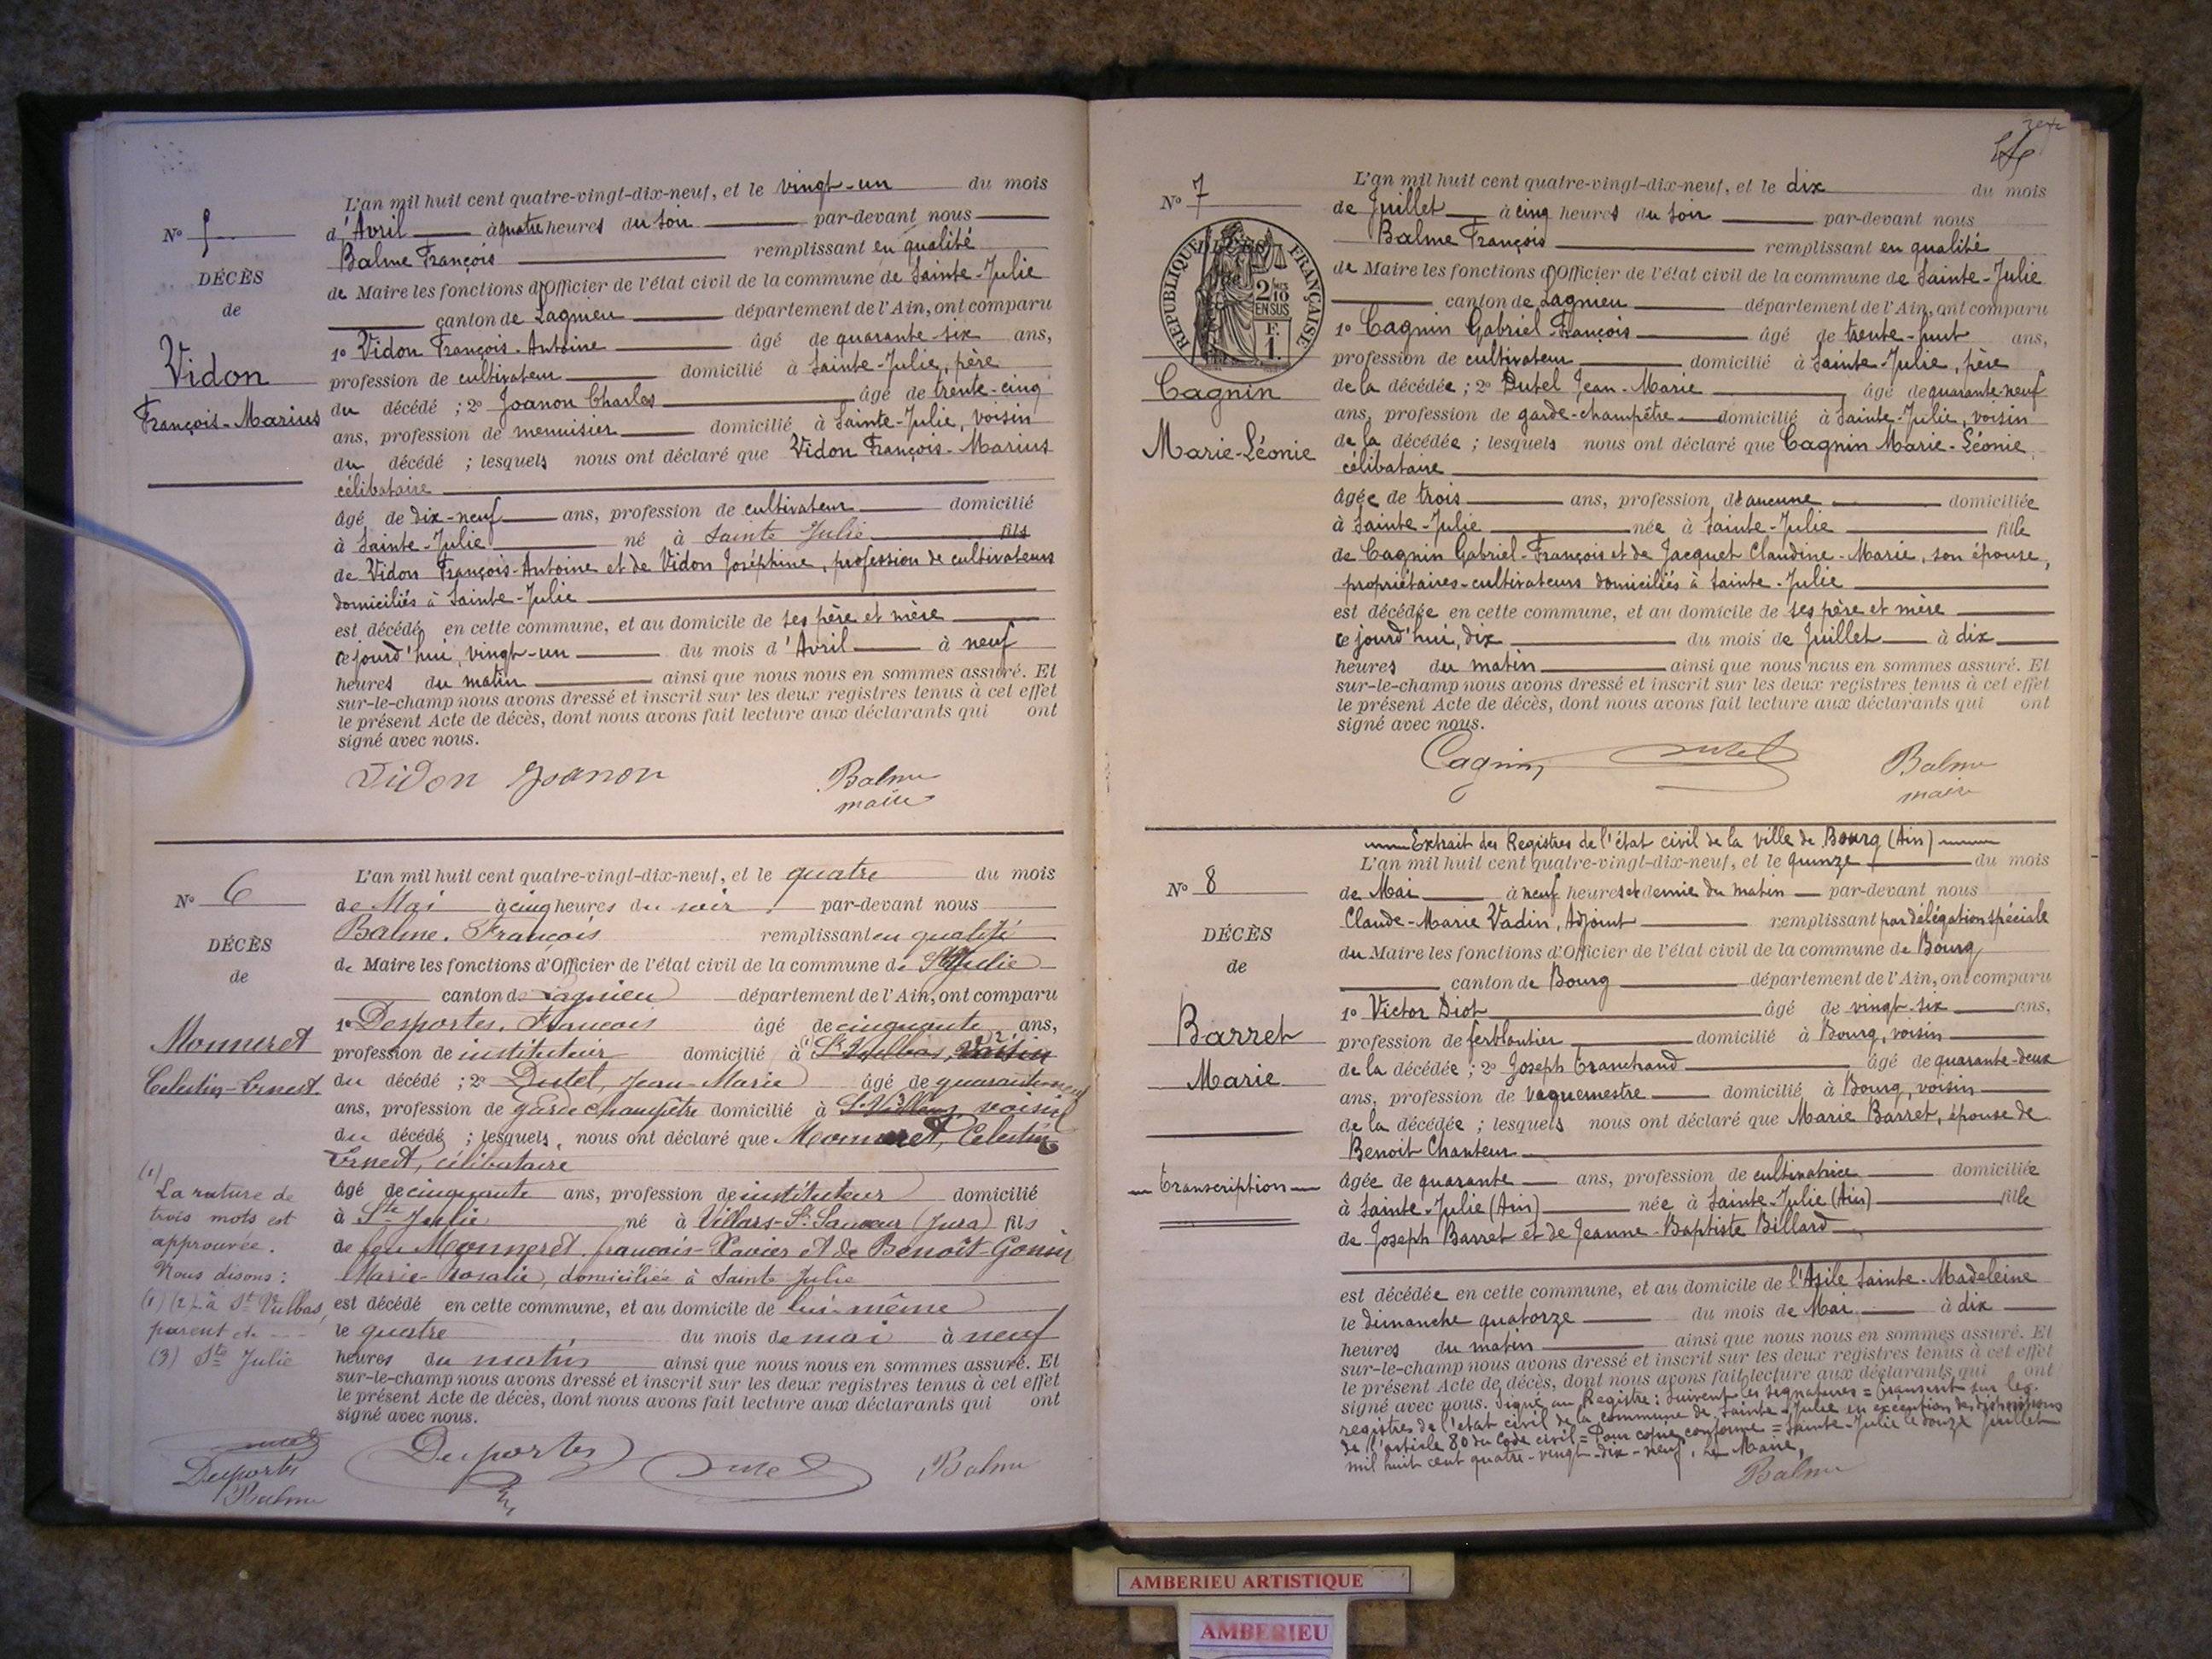 L'an mil huit cent quatre-vingt-dix-neuf, et le vingt-un du mois
d'Avril à quatre heures du soir par-devant nous
Balme François remplissant en qualité
de Maire les fonctions d'Officier de l'état civil de la commune de Sainte-Julie
canton de Lagnieu département de l'Ain, ont comparu
1º Vidon François-Antoine âgé de quarante-six ans,
profession de cultivateur domicilié à Sainte-Julie, père
du décédé ; 2º Joanon Charles âgé de trente-cinq
ans, profession de menuisier domicilié à Sainte-Julie, voisin
du décédé ; lesquels nous ont déclaré que Vidon François-Marius
célibataire
âgé de dix-neuf ans, profession de cultivateur domicilié
à Sainte-Julie né à Sainte Julie fils
de Vidon François-Antoine et de Vidon Joséphine, profession de cultivateurs
domiciliés à Sainte-Julie
est décédé en cette commune, et au domicile de ses père et mère
ce jourd'hui, vingt-un du mois d'Avril à neuf
heures du matin ainsi que nous nous en sommes assuré. Et
sur-le-champ nous avons dressé et inscrit sur les deux registres tenus à cet effet
le présent Acte de décès, dont nous avons fait lecture aux déclarants qui ont
signé avec nous.
Vidon Joanon Balme
maire
Nº 5
DÉCÈS
de
Vidon
François-Marius
Nº 6
DÉCÈS
de
Monneret
Celestin-Ernest.
L'an mil huit cent quatre-vingt-dix-neuf, et le quatre du mois
de Mai à cinq heures du soir par-devant nous
Balme, François remplissant en qualité
de Maire les fonctions d'Officier de l'état civil de la commune de Ste Julie
canton de Lagnieu département de l'Ain, ont comparu
1º Desportes, François âgé de cinquante ans,
profession de instituteur domicilié à (1) St Vulbas, voisin (2)
du décédé ; 2º Dutel, Jean-Marie âgé de quarante-neuf
ans, profession de garde champêtre domicilié à St Vulbas (3), voisin
du décédé ; lesquels nous ont déclaré que Monneret, Celestin
Ernest, célibataire
âgé de cinquante ans, profession de instituteur domicilié
à Ste Julie né à Villars-St Sauveur (Jura) fils
de feu Monneret, françois-Xavier et de Benoît-Gonin
Marie-Rosalie, domiciliée à Sainte Julie
est décédé en cette commune, et au domicile de lui-même
le quatre du mois de mai à neuf
heures du matin ainsi que nous nous en sommes assuré. Et
sur-le-champ nous avons dressé et inscrit sur les deux registres tenus à cet effet
le présent Acte de décès, dont nous avons fait lecture aux déclarants qui ont
signé avec nous.
(1)
La rature de
trois mots est
approuvée.
Nous disons :
(1) (2) à St Vulbas,
parent et
(3) Ste Julie
Dutel
Desportes
Balme
Desportes Dutel Balme
Nº 7
RÉPUBLIQUE FRANÇAISE
2/10 EN SUS
F. 1.
Cagnin
Marie-Léonie
L'an mil huit cent quatre-vingt-dix-neuf, et le dix du mois
de Juillet à cinq heures du soir par-devant nous
Balme François remplissant en qualité
de Maire les fonctions d'Officier de l'état civil de la commune de Sainte-Julie
canton de Lagnieu département de l'Ain, ont comparu
1º Cagnin Gabriel François âgé de trente-huit ans,
profession de cultivateur domicilié à Sainte-Julie, père
de la décédée ; 2º Dutel Jean-Marie âgé de quarante-neuf
ans, profession de garde-champêtre domicilié à Sainte-Julie, voisin
de la décédée ; lesquels nous ont déclaré que Cagnin Marie-Léonie,
célibataire
âgée de trois ans, profession d'aucune domiciliée
à Sainte-Julie née à Sainte-Julie fille
de Cagnin Gabriel-François et de Jacquet Claudine-Marie, son épouse,
propriétaires-cultivateurs domiciliés à Sainte-Julie
est décédée en cette commune, et au domicile de ses père et mère
ce jourd'hui, dix du mois de Juillet à dix
heures du matin ainsi que nous nous en sommes assuré. Et
sur-le-champ nous avons dressé et inscrit sur les deux registres tenus à cet effet
le présent Acte de décès, dont nous avons fait lecture aux déclarants qui ont
signé avec nous.
Cagnin Dutel Balme
maire
Nº 8
DÉCÈS
de
Barret
Marie
Transcription
Extrait des Registres de l'état civil de la ville de Bourg (Ain)
L'an mil huit cent quatre-vingt-dix-neuf, et le quinze du mois
de Mai à neuf heures et demie du matin par-devant nous
Claude-Marie Vadin, Adjoint remplissant par délégation spéciale
du Maire les fonctions d'Officier de l'état civil de la commune de Bourg
canton de Bourg département de l'Ain, ont comparu
1º Victor Diot âgé de vingt-six ans,
profession de ferblantier domicilié à Bourg, voisin
de la décédée ; 2º Joseph Tranchand âgé de quarante-deux
ans, profession de vaguemestre domicilié à Bourg, voisin
de la décédée ; lesquels nous ont déclaré que Marie Barret, épouse de
Benoit Chanteur
âgée de quarante ans, profession de cultivatrice domiciliée
à Sainte-Julie (Ain) née à Sainte-Julie (Ain) fille
de Joseph Barret et de Jeanne-Baptiste Billard
est décédée en cette commune, et au domicile de l'Asile Sainte-Madeleine
le dimanche quatorze du mois de Mai à dix
heures du matin ainsi que nous nous en sommes assuré. Et
sur-le-champ nous avons dressé et inscrit sur les deux registres tenus à cet effet
le présent Acte de décès, dont nous avons fait lecture aux déclarants qui ont
signé avec nous. Signé au Registre : Suivent les signatures = Transcrit sur les
registres de l'état civil de la commune de Sainte-Julie en exécution des dispositions
de l'article 80 du Code civil = Pour copie conforme = Sainte-Julie le douze Juillet
mil huit cent quatre-vingt-dix-neuf, Le Maire,
Balme
AMBERIEU ARTISTIQUE
AMBERIEU